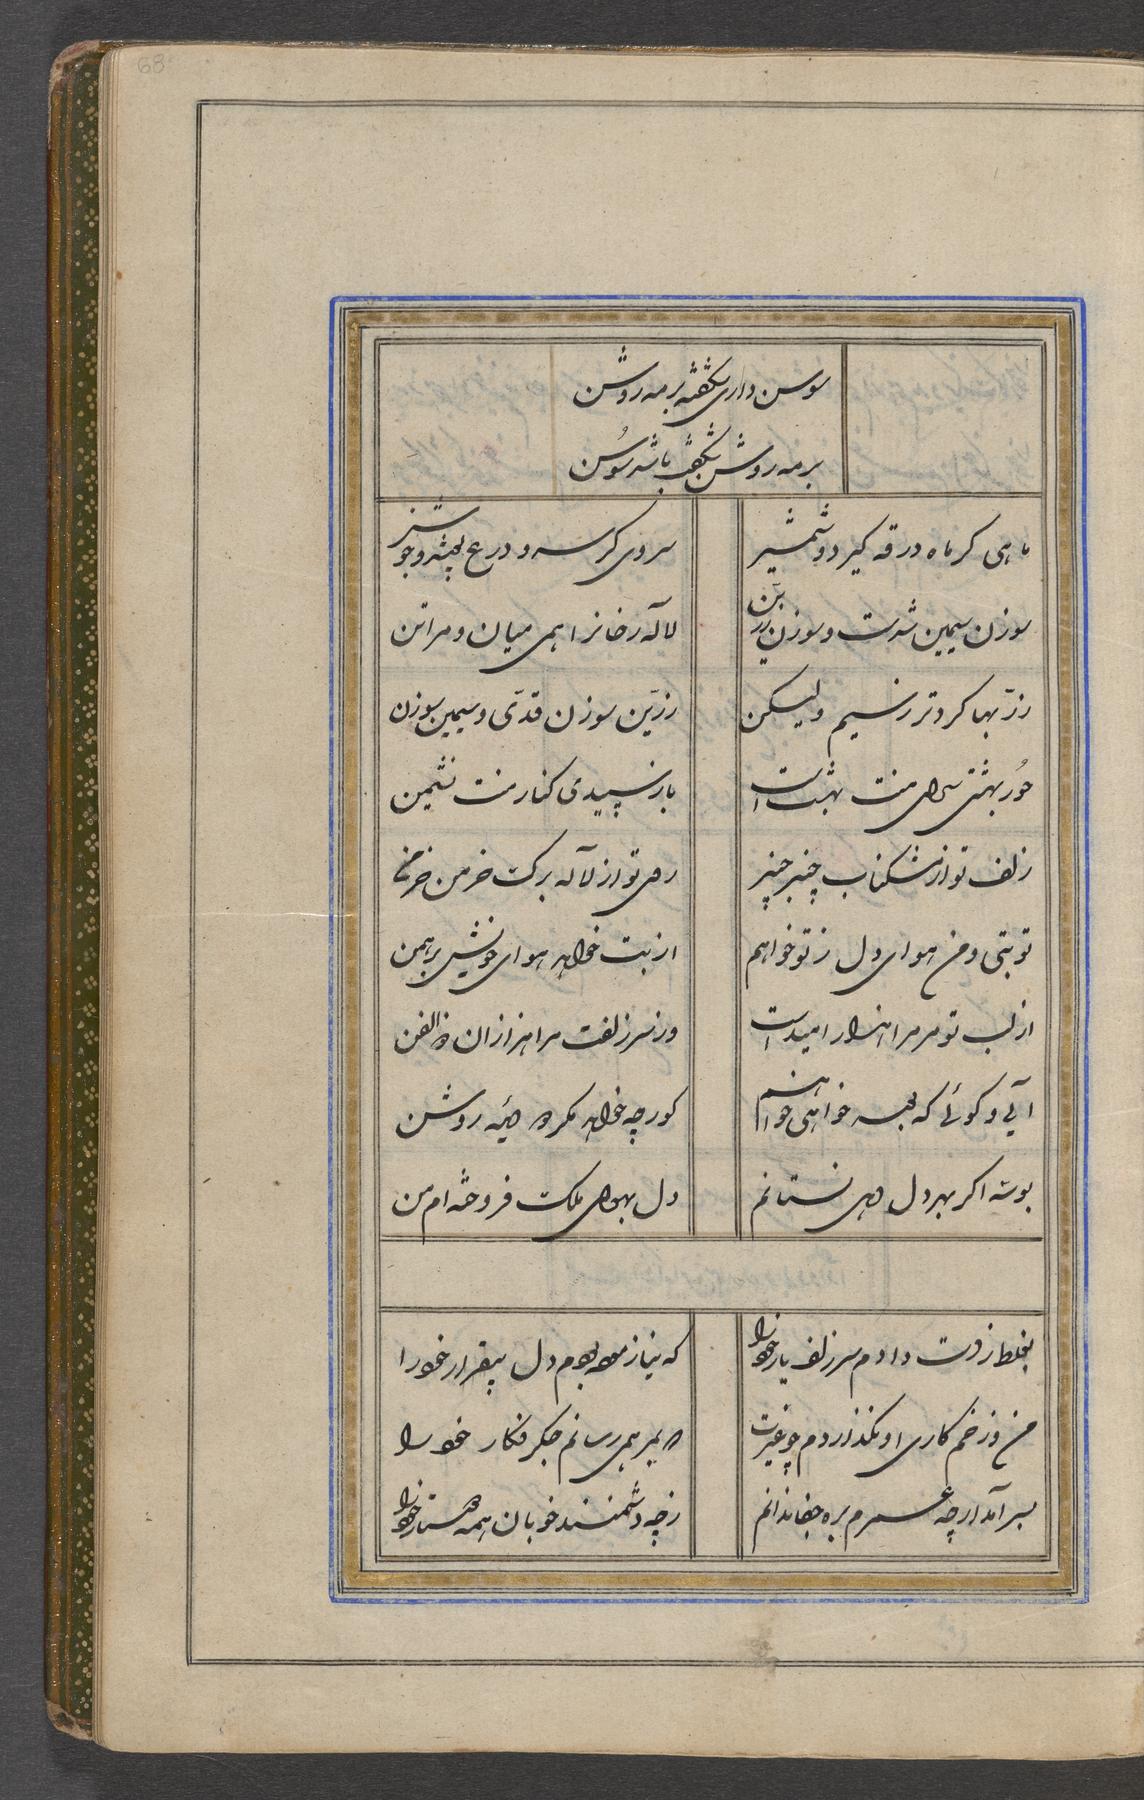 68
سوسن داری شکفته بر مه روشن
بر مه روشن شکفته باشد سوسن
ماهی گر ماه درقه گیرد و شمشیر
سروی گر سرو درع پوشد و جوشن
سوزن سیمین شدست و سوزن زرین
لاله رخا نزا همی میان و مرا تن
زر بها کرد تر ز سیم ولیکن
زرین سوزن قدی و سیمین سوزن
حور بهشتی سرای منت بهشت است
باز سپیدی کنار منت نشیمن
زلف تو از مشکناب چنبر چنبر
روی تو از لاله برکت خرمن خرمن
تو بتی و من هوای دل ز تو خواهم
از بت خواهد هوای خویش برهمن
از لب تو مر مرا هزار امید است
وز سر زلفت مرا هزار ازان
آیی و کوئی که بوسه خواهی خواهم
کور چه خواهد مکر دو دیده روشن
بوسه اکر بهر دل دهی نستانم
دل بهوای ملک فروخته ام من
بغلط ز دست دادم سر زلف یار خود را
که نیازموده بودم دل بیقرار خود را
من و زخم کاری او نکذاردم چو غیرت
که بمرهمی رسانم جکر فکار خود را
بسر آمد ارچه عمرم بره جفا ندانم
ز چه دشمنند خوبان همه دوستدار خود را